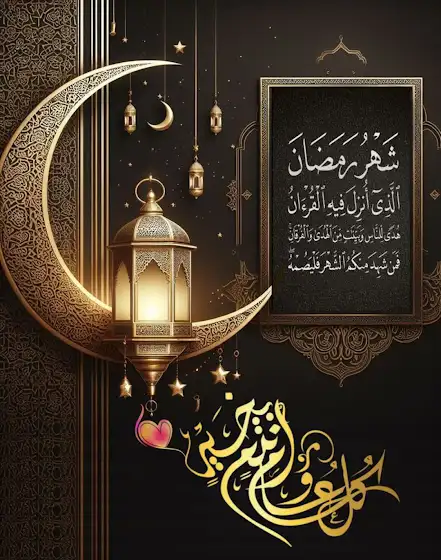 شَهْرُ رَمَضَانَ
ٱلَّذِىٓ أُنزِلَ فِيهِ ٱلْقُرْءَانُ
هُدًى لِّلنَّاسِ وَبَيِّنَٰتٍ مِّنَ ٱلْهُدَىٰ وَٱلْفُرْقَانِ ۚ
فَمَن شَهِدَ مِنكُمُ ٱلشَّهْرَ فَلْيَصُمْهُ
كل عام وأنتم بخير